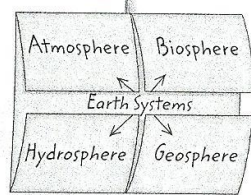 Atmosphere Biosphere
Earth Systems
Hydrosphere Geosphere